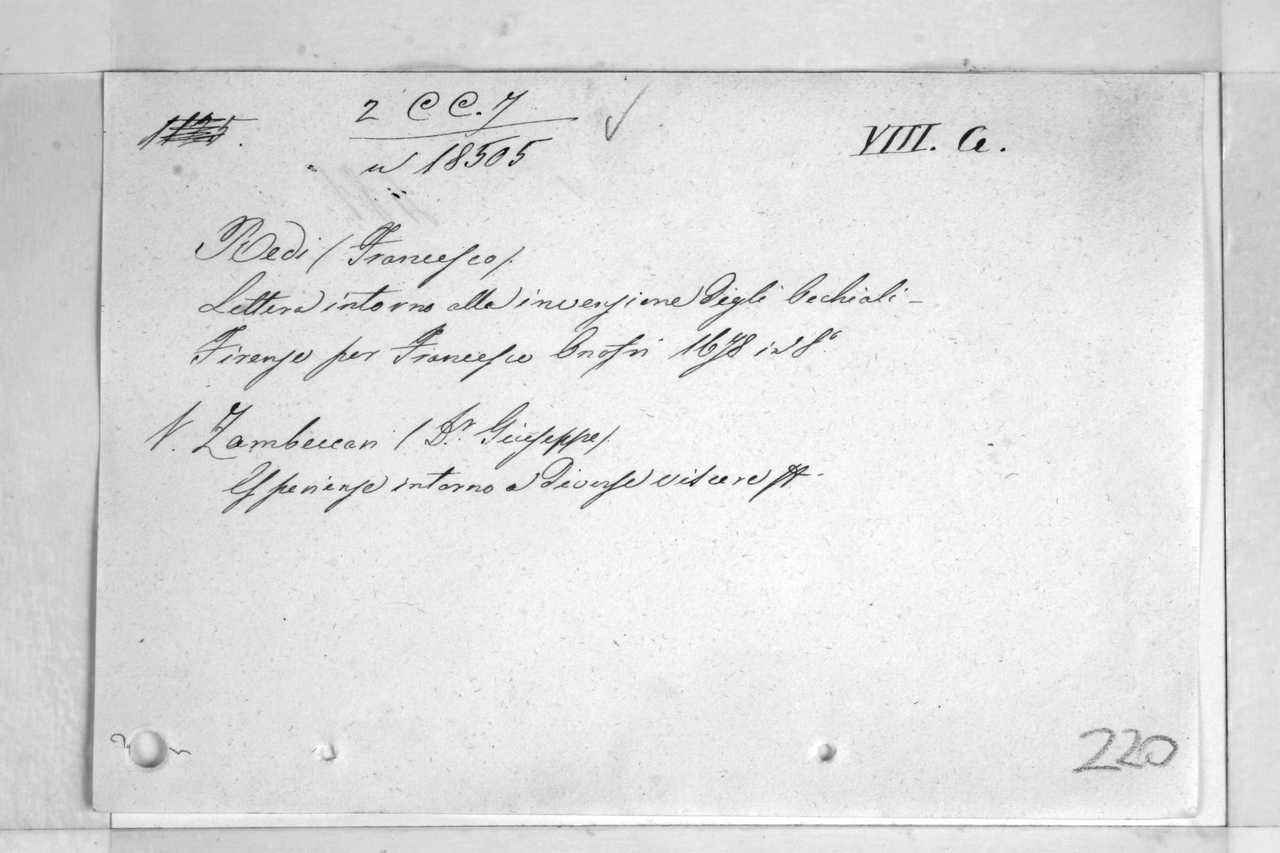 2 C C. 7
VIII. A.
18505
Redi (Francesco).
Lettera intorno alla invenzione degli Occhiali –
Firenze per Francesco Onofri 1678 in 8°
V. Zambeccari (Dr. Giuseppe).
Esperienze intorno a diverse viscere
220